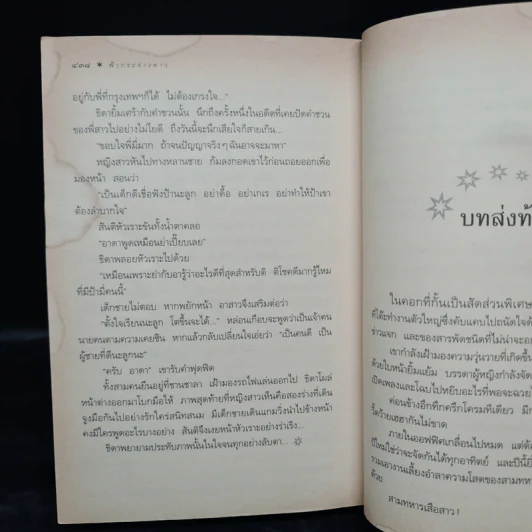 ๔๓๘ ✷ ฟ้ากระจ่างดาว
อยู่กับพี่ที่กรุงเทพฯก็ได้ ไม่ต้องเกรงใจ..."
ธิดายิ้มเศร้ากับคำชวนนั้น นึกถึงครั้งหนึ่งในอดีตที่เคยปัดคำชวน
ของพี่สาวไปอย่างไม่ไยดี ถึงวันนี้จะนึกเสียใจก็สายเกิน...
"ขอบใจพี่มีมาก ถ้าจนปัญญาจริงๆ ฉันอาจจะมาหา"
หญิงสาวหันไปทางหลานชาย ก้มลงกอดเขาไว้ก่อนถอยออกเพื่อ
มองหน้า สอนว่า
"เป็นเด็กดีเชื่อฟังป้านะลูก อย่าดื้อ อย่าเกเร อย่าทำให้ป้าเขา
ต้องลำบากใจ"
สันติหัวเราะขันทั้งน้ำตาคลอ
"อาดาพูดเหมือนย่าเปี๊ยบเลย"
ธิดาพลอยหัวเราะไปด้วย
"เหมือนเพราะย่ากับอารู้ว่าอะไรดีที่สุดสำหรับติ ติโชคดีมากรู้ไหม
ที่มีป้ามี่คนนี้"
เด็กชายไม่ตอบ หากพยักหน้า อาสาวจึงเสริมต่อว่า
"ตั้งใจเรียนนะลูก โตขึ้นจะได้..." หล่อนเกือบจะพูดว่าเป็นเจ้าคน
นายคนตามความเคยชิน หากแล้วกลับเปลี่ยนใจเอ่ยว่า "เป็นคนดี เป็น
ผู้ชายที่ดีนะลูกนะ"
"ครับ อาดา" เขารับคำฟุดฟิด
ทั้งสามคนยืนอยู่ที่ชานชาลา เฝ้ามองรถไฟแล่นออกไป ธิดาโผล่
หน้าต่างออกมาโบกมือให้ ภาพสุดท้ายที่หญิงสาวเห็นคือสองร่างที่เดิน
จูงมือกันไปอย่างรักใคร่สนิทสนม มีเด็กชายเดินแกมวิ่งนำไปข้างหน้า
คงมีใครพูดอะไรบางอย่าง สันติจึงเงยหน้าหัวเราะอย่างร่าเริง...
ธิดาพยายามประทับภาพนั้นในใจจนทุกอย่างลับตา...
บทส่งท้
ในคอกที่กั้นเป็นสัดส่วนพิเศษ
ที่โต๊ะทำงานตัวใหญ่ซึ่งคับแคบไปถนัดใจด้
ข่าวแจก และของสารพัดชนิดที่ไม่น่าจะอย
เขากำลังเฝ้ามองความวุ่นวายที่เกิดขึ้น
ด้วยใบหน้ายิ้มแย้ม บรรดาผู้หญิงกำลังจัด
เปิดเพลงและโฉบไปหยิบอะไรที่พอจะฉวยไ
ค่อนข้างอึกทึกครึกโครมทีเดียว มีก
รี้ดว้ายเฮฮากันไม่ขาด
ภายในออฟฟิศเกลื่อนไปหมด แต่ต้อ
ปีใหม่ใช่ว่าจะจัดกันได้ทุกอาทิตย์ และปีนี้ยั
รวมเอางานเลี้ยงอำลาความโสดของสามทห
ด้วย
สามทหารเสือสาว!